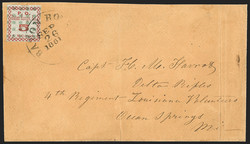 BATON RO
SEP
26
1861
Capt. H. M. Favrot
Delta Rifles
4th Regiment - Louisiana Volunteers
Ocean Springs
Miss